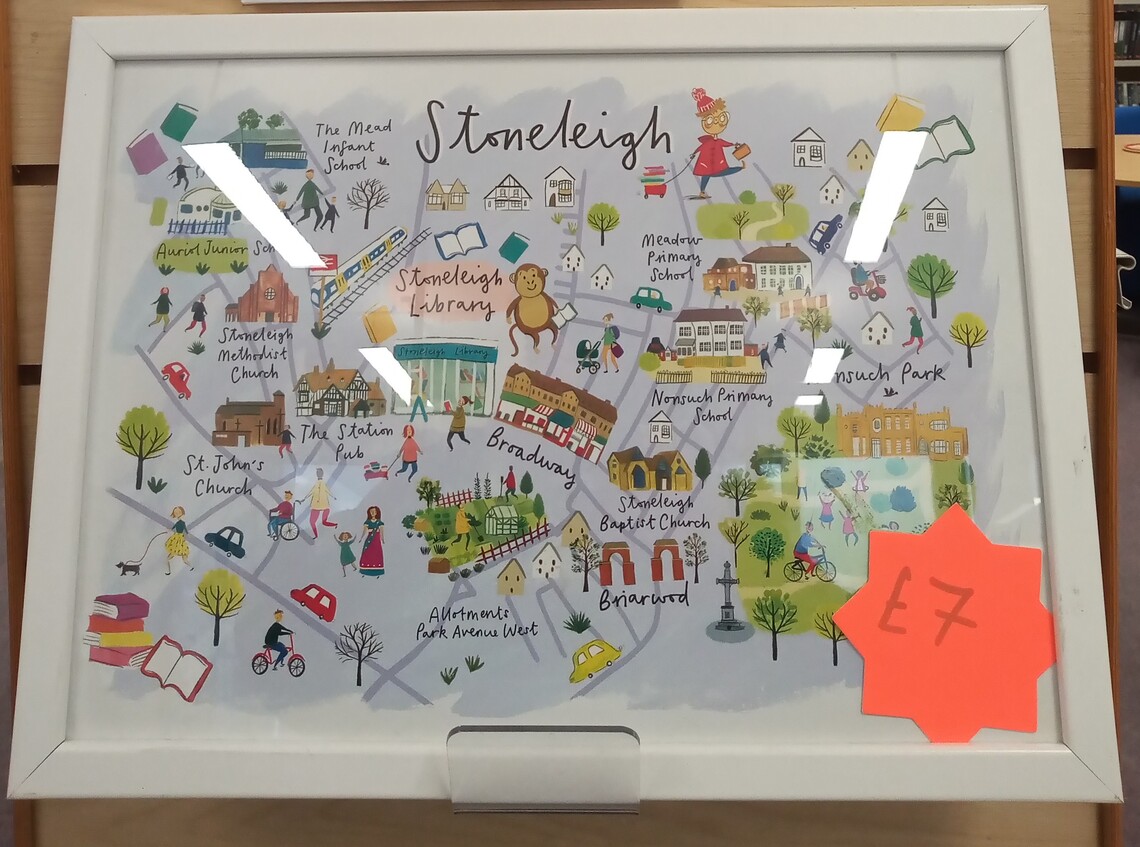 Stoneleigh
The Mead
Infant
School
Auriol Junior Sch
Stoneleigh
Library
Meadow
Primary
School
Stoneleigh
Methodist
Church
Stoneleigh Library
The Station
Pub
Broadway
Nonsuch Primary
School
nsuch Park
St. John's
Church
Stoneleigh
Baptist Church
Briarwod
Allotments
Park Avenue West
£7